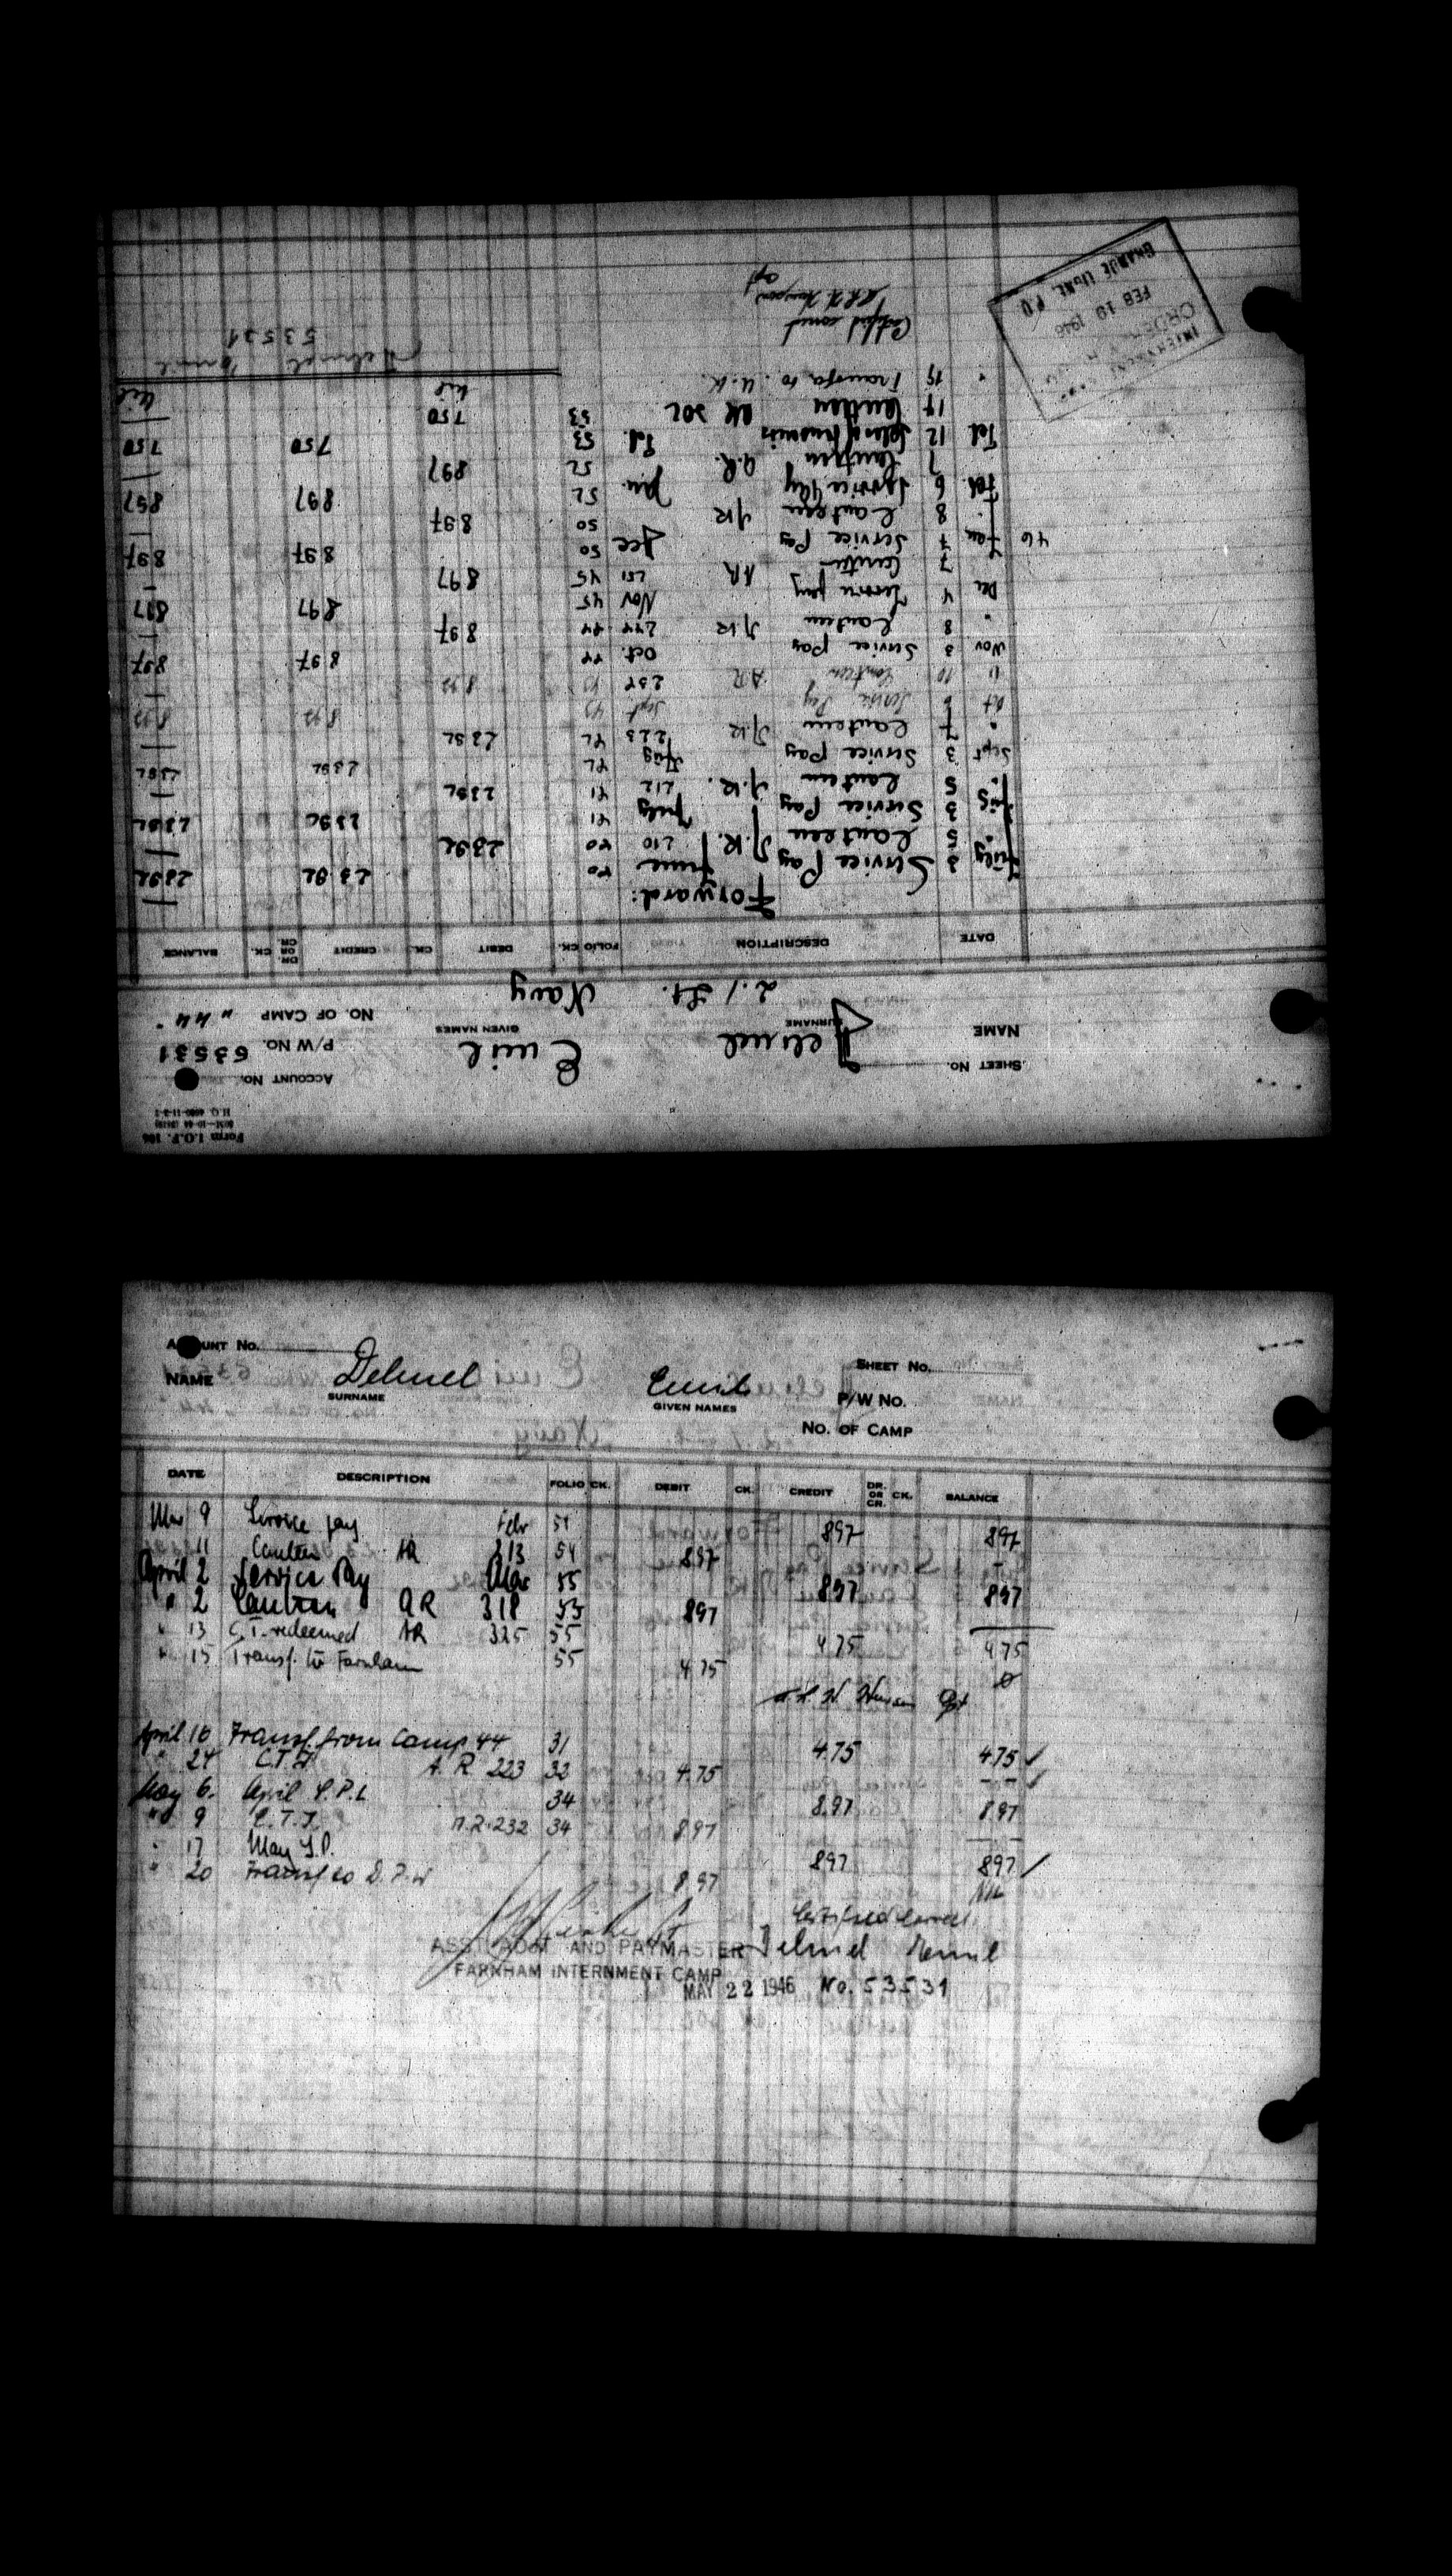 Form I.O.F. 106
ACCOUNT No.
SHEET No.
P/W No. 53531
NAME Delmel Emil
SURNAME GIVEN NAMES
NO. OF CAMP "44"
2./Lt. Navy
DATE DESCRIPTION FOLIO CK. DEBIT CK. CREDIT DR. OR CR. CK. BALANCE
Forward:
July 3 Service Pay June 40 2392 2392
" 5 Canteen A.R. 210 40 2392 —
Aug. 3 Service Pay July 41 2392 2392
" 5 Canteen A.R. 212 41 2392 —
Sept 3 Service Pay Aug 42 2392 2392
" 7 Canteen A.R. 223 42 2392 —
Oct 6 Service Pay Sept 43 897 897
" 10 Canteen AR 234 43 897 —
Nov 3 Service Pay Oct. 44 897 897
" 8 Canteen A.R. 244 44 897 —
Dec 4 Service pay Nov 45 897 897
7 Canteen AR 251 45 897 —
46 Jan 7 Service Pay Dec 50 897 897
" 8 Canteen AR 50 897 —
Feb. 6 Service Pay Jan. 52 897 897
7 Canteen A.R. 52 897 —
Feb 12 Feb. 53 750 750
14 Canteen AR 302 53 750 Nil
" 15 Transfer to U.K. Nil
Delmel Emil
53531
Certified correct
Capt
FEB 10 1946
GRANDE LIGNE, P.Q.
ACCOUNT No.
SHEET No.
NAME Delmel Emil
SURNAME GIVEN NAMES
P/W No.
No. OF CAMP
DATE DESCRIPTION FOLIO CK. DEBIT CK. CREDIT DR. OR CR. CK. BALANCE
Mar 9 Service pay Febr 54 897 897
11 Canteen AR 313 54 897 —
April 2 Service Pay Mar 55 897 897
" 2 Canteen AR 318 55 897
" 13 C.T. redeemed AR 325 55 4.75 475
" 15 Transf. to Farnham 55 4.75 0
Cpt
April 16 Transf. from Camp 44 31 4.75 475 ✓
" 24 C.T.I. A.R 223 32 4.75 - - ✓
May 6. April S.P.L 34 8.97 8.97
" 9 C.T.I. A.R. 232 34 8.97
" 17 May S.P. 897 897 ✓
" 20 Transf to D.P.W 8.97 Nil
Certified correct
ASST ADJT AND PAYMASTER Delmel Emil
FARNHAM INTERNMENT CAMP
MAY 22 1946 No. 53531